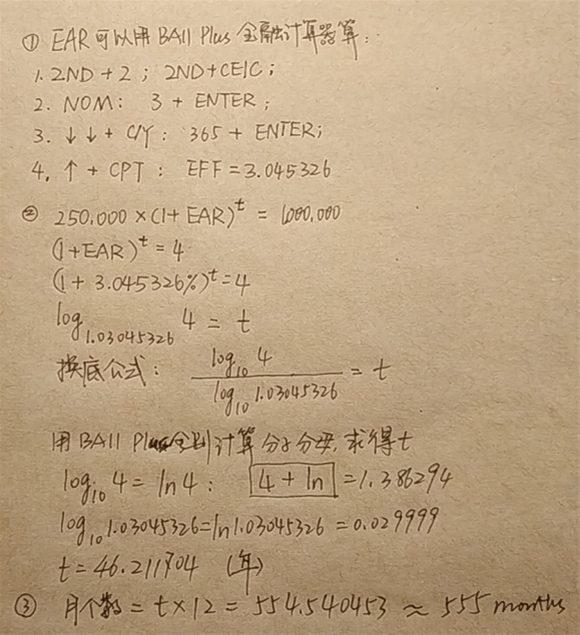 ① EAR可以用BAII Plus 金融计算器算:
1. 2ND + 2 ; 2ND+CE|C ;
2. NOM: 3 + ENTER ;
3. ↓↓ + C/Y : 365 + ENTER;
4. ↑ + CPT : EFF = 3.045326
② 250.000 ×(1+ EAR)^t = 1000.000
(1+EAR)^t = 4
(1 + 3.045326%)^t = 4
log_1.03045326 4 = t
换底公式: log_10 4 / log_10 1.03045326 = t
用BAII Plus分别计算分子分母,求得t
log_10 4 = ln 4 : 4 + ln = 1.386294
log_10 1.03045326 = ln 1.03045326 = 0.029999
t = 46.211704 (年)
③ 月个数 = t × 12 = 554.540453 ≈ 555 months